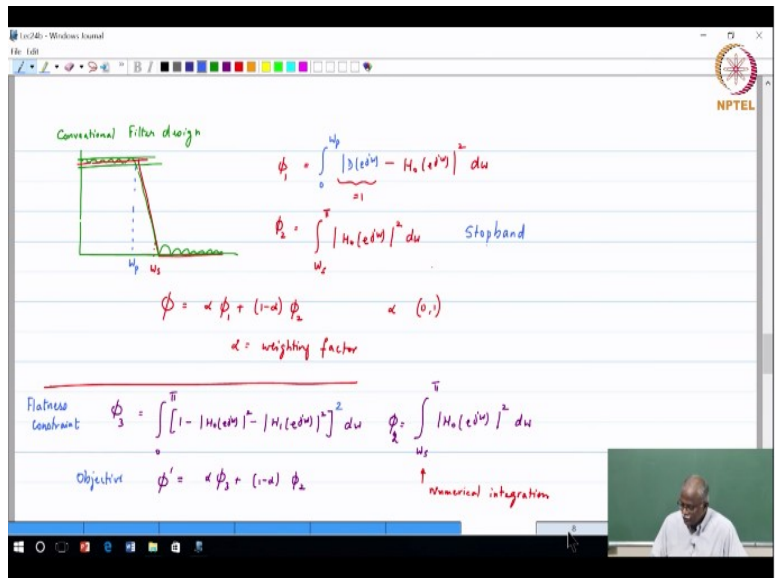 Lec24b - Windows Journal
File Edit
B I
NPTEL
Conventional Filter design
ϕ₁ = ∫₀^{ωp} |D(e^{jω}) - H₀(e^{jω})|² dω
=1
ϕ₂ = ∫_{ωs}^{π} |H₀(e^{jω})|² dω Stopband
ωp ωs
ϕ = α ϕ₁ + (1-α) ϕ₂ α (0,1)
α = weighting factor
Flatness constraint ϕ₃ = ∫₀^{π} [1 - |H₀(e^{jω})|² - |H₁(e^{jω})|²]² dω ϕ₂ = ∫_{ωs}^{π} |H₀(e^{jω})|² dω
Objective ϕ' = α ϕ₃ + (1-α) ϕ₂
↑ Numerical integration
8